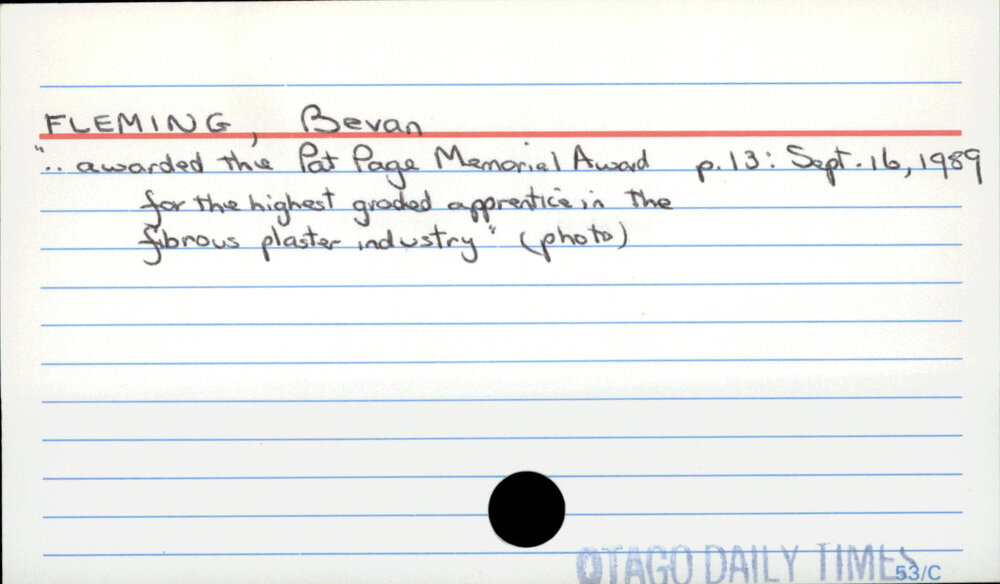 FLEMING, Bevan
".. awarded the Pat Page Memorial Award p.13: Sept. 16, 1989
for the highest graded apprentice in the
fibrous plaster industry" (photo)
OTAGO DAILY TIMES
53/C